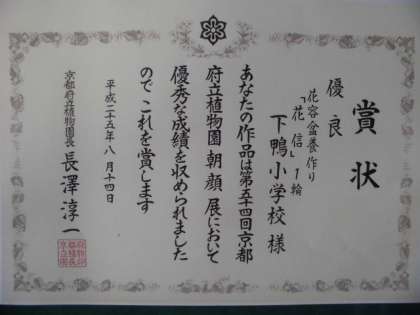 賞状
優良
花容盆養作り
「花信」1輪
下鴨小学校 様
あなたの作品は第五十四回京都
府立植物園 朝顔 展において
優秀な成績を収められました
ので これを賞します
平成二十五年 八 月十四日
京都府立植物園長 長澤淳一